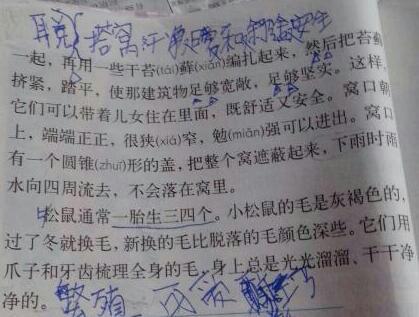 一起,再用一些干苔(tái)藓(xiǎn)编扎起来,然后把苔藓
挤紧,踏平,使那建筑物足够宽敞,足够坚实。这样,
它们可以带着儿女住在里面,既舒适又安全。窝口朝
上,端端正正,很狭(xiá)窄,勉(miǎn)强可以进出。窝口
有一个圆锥(zhuī)形的盖,把整个窝遮蔽起来,下雨时雨
水向四周流去,不会落在窝里。
松鼠通常一胎生三四个。小松鼠的毛是灰褐色的,
过了冬就换毛,新换的毛比脱落的毛颜色深些。它们用
爪子和牙齿梳理全身的毛,身上总是光光溜溜、干干净
净的。
繁殖